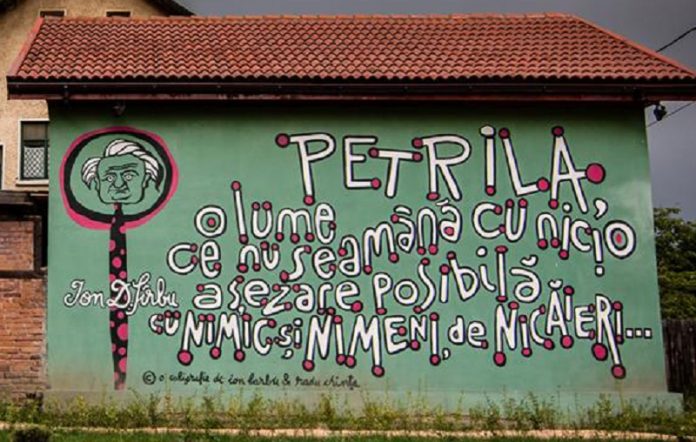 PETRILA,
o lume
ce nu seamănă cu nici,o
așezare posibilă
cu NIMIC și NIMENI, de NICĂIERI...
Ion D. Sîrbu
© o caligrafie de ion barbu & radu chința